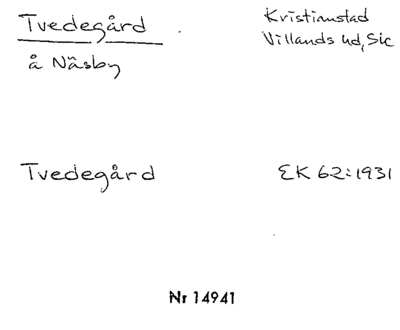 Tvedegård
Kristianstad
Villands hd, Slc
å Näsby
Tvedegård
EK 62:1931
Nr 14941